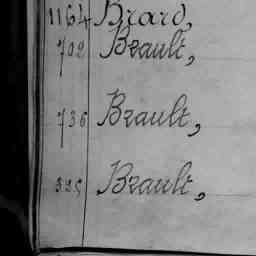 1164 Brard,
702 Brault,
736 Brault,
395 Brault,